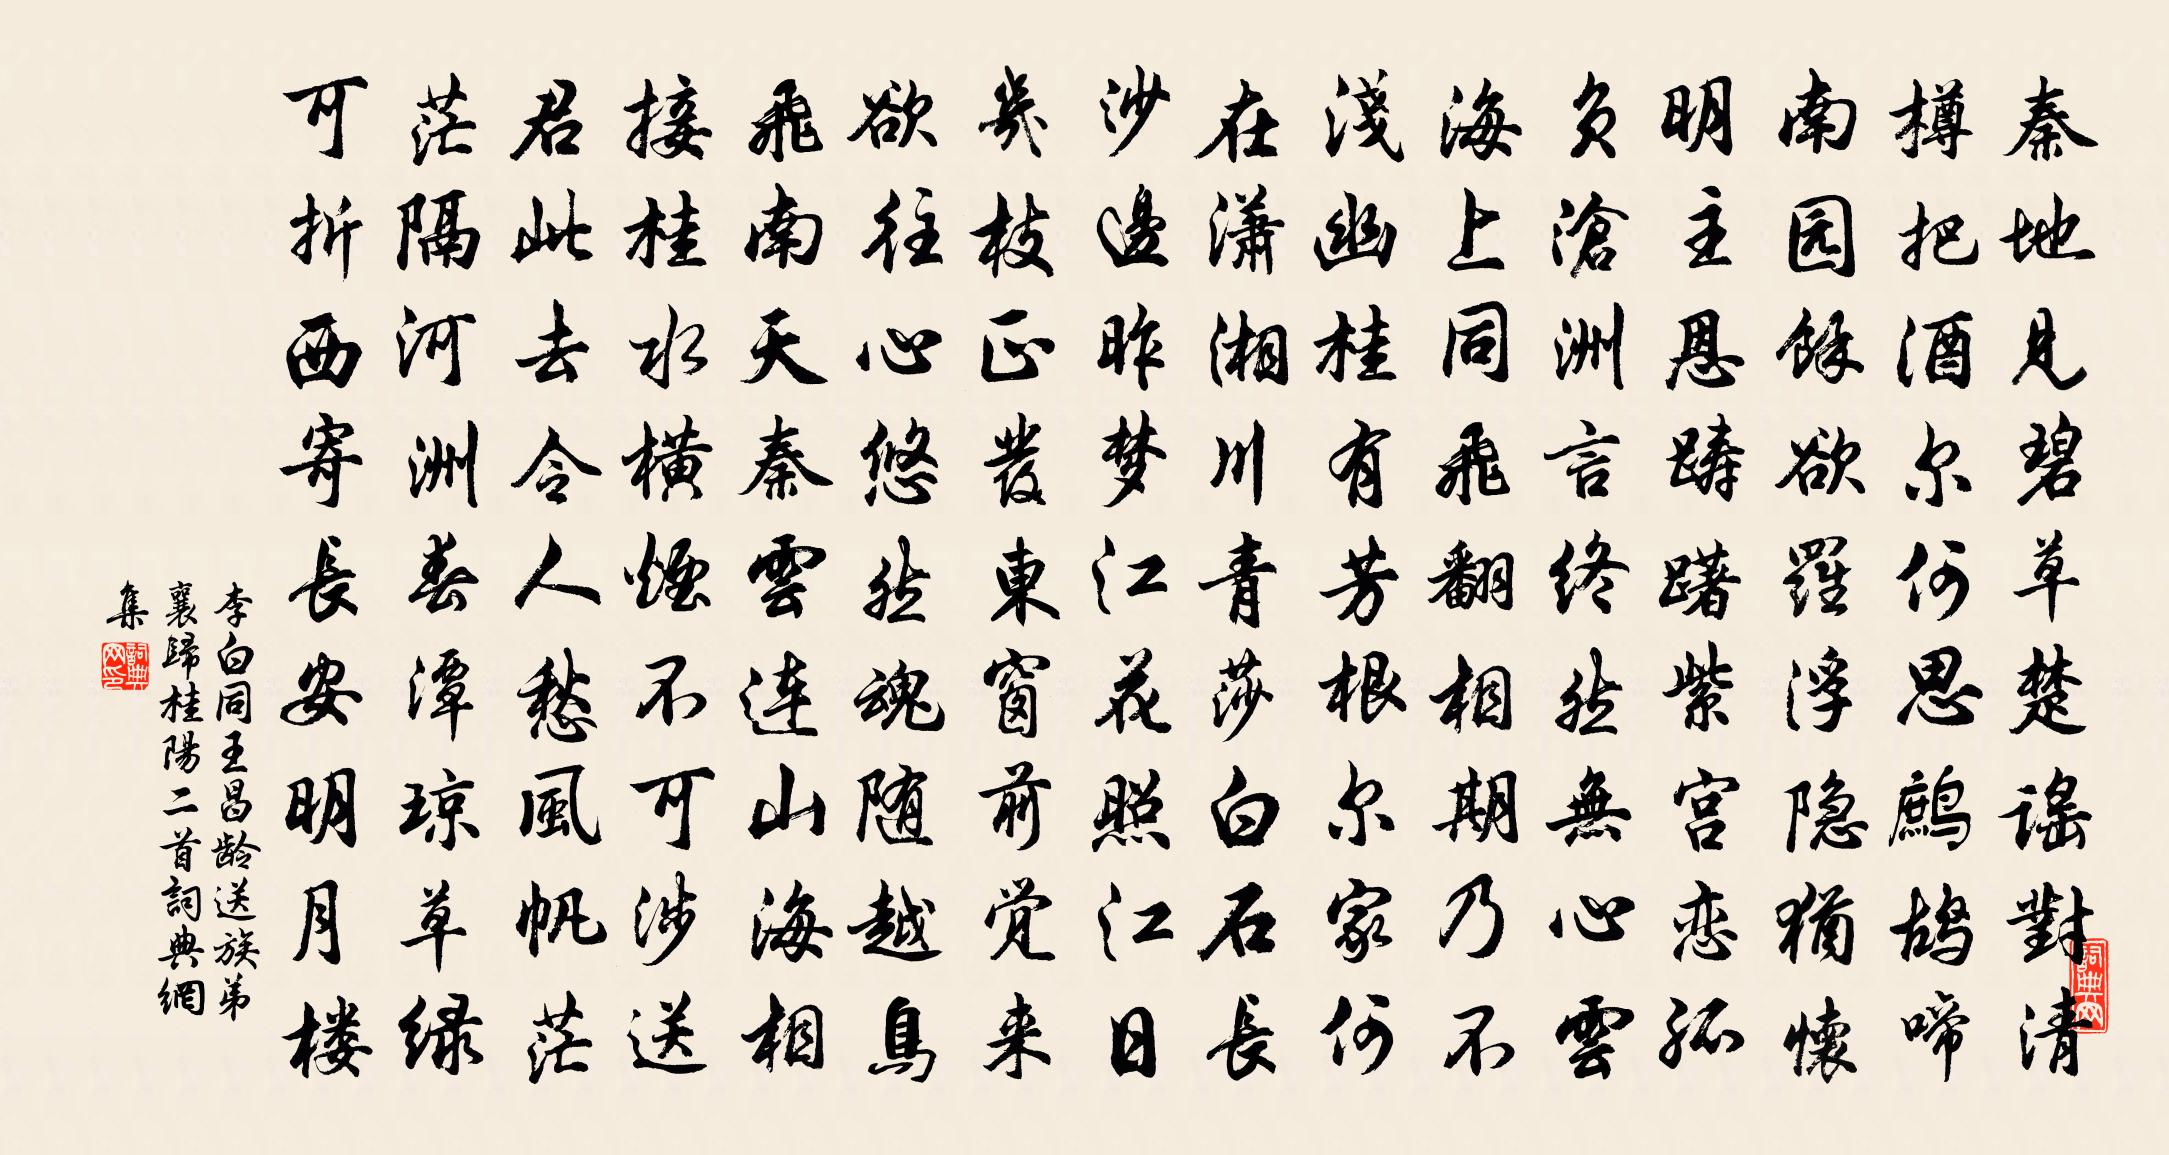 秦地見碧草楚謠對清
樽把酒尔何思鷓鴣啼
南园餘欲羅浮隐猶懷
明主恩躊躇紫宫恋孤
负滄洲言终然無心雲
海上同飛翻相期乃不
淺幽桂有芳根尔家何
在瀟湘川青莎白石長
沙邊昨梦江花照江日
幾枝正發東窗前觉来
欲往心悠然魂随越鳥
飛南天秦雲连山海相
接桂水横煙不可涉送
君此去令人愁風帆茫
茫隔河洲春潭琼草绿
可折西寄長安明月楼
李白同王昌龄送族弟
襄歸桂陽二首詞典網
集
詞典网印
詞典网